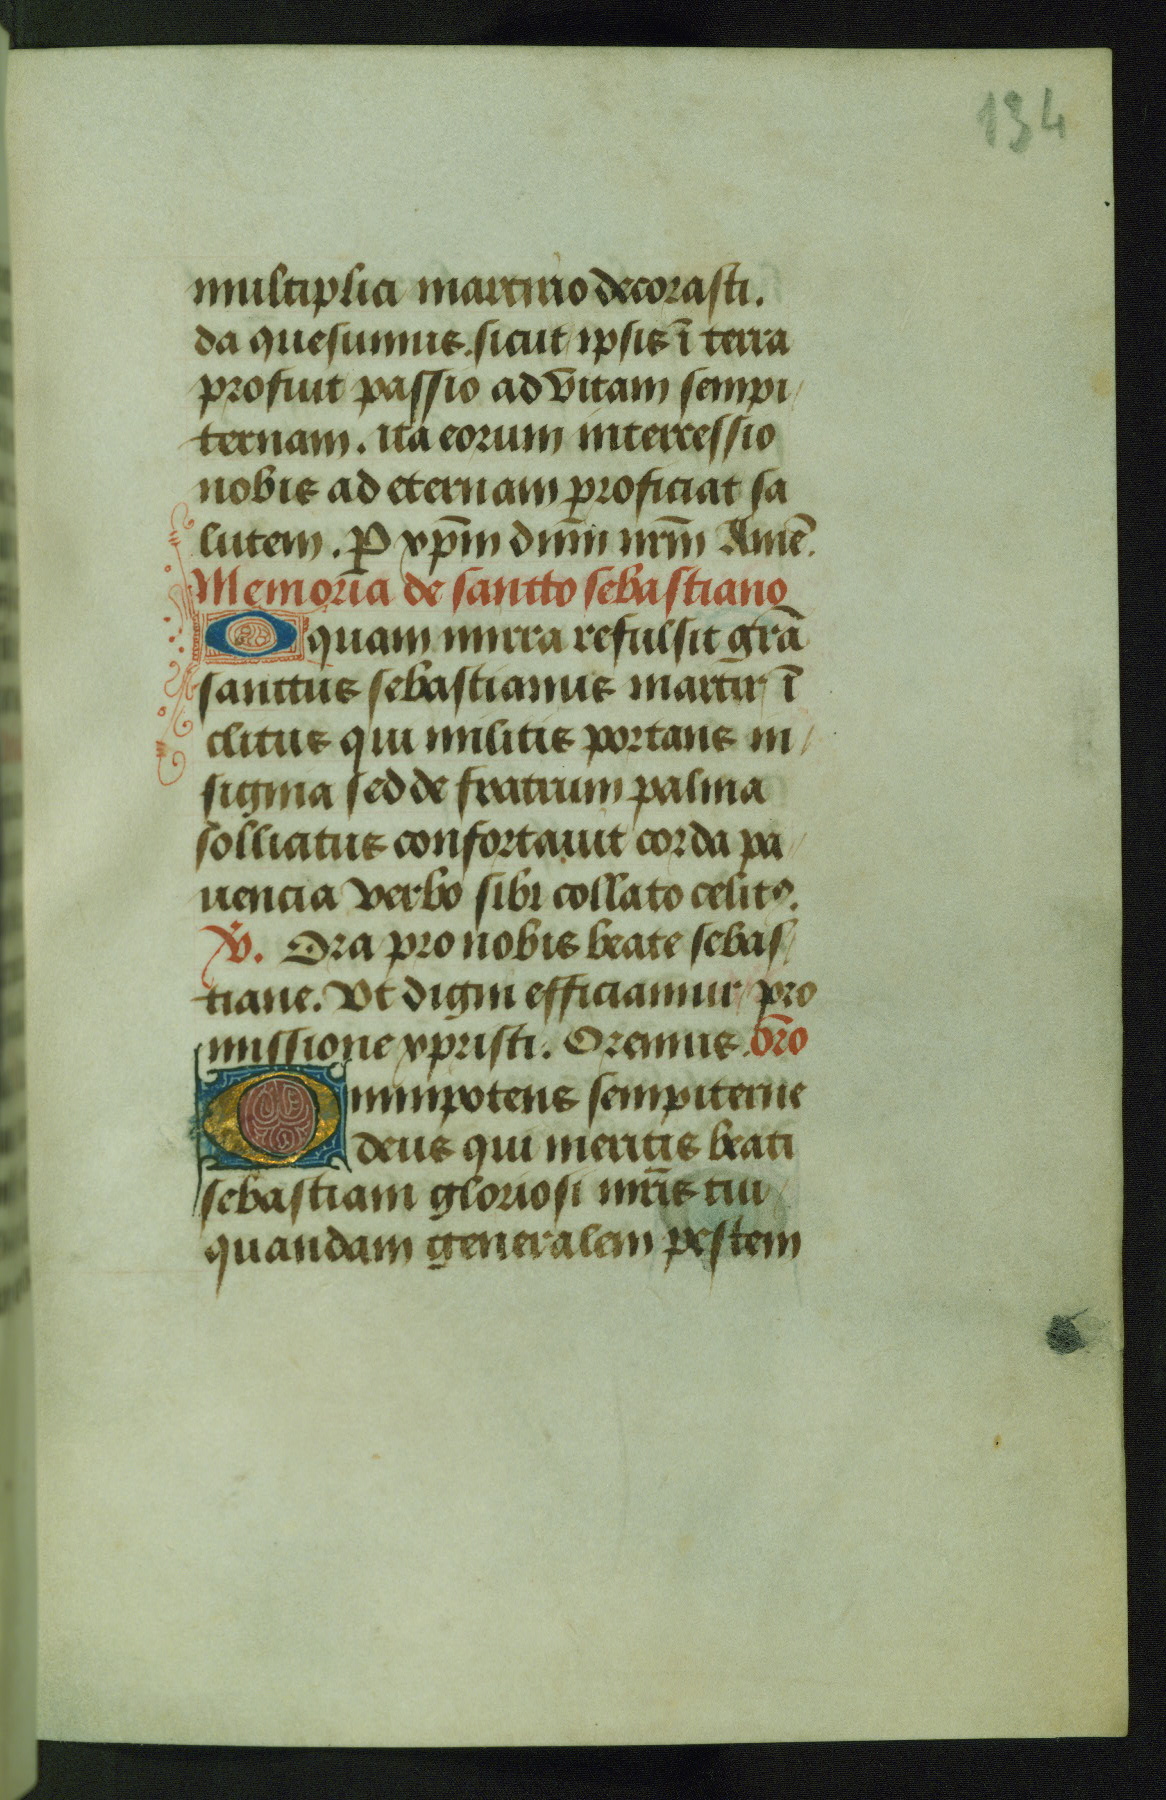 134
multiplici martirio decorasti.
da quesumus. sicut ipsis ī terra
profuit passio ad vitam sempi
ternam. ita eorum intercessio
nobis ad eternam proficiat sa
lutem. P xp̄m dn̄m nr̄m Amē.
Memoria de sancto sebastiano
O quam mirra refulsit grā
sanctus sebastianus martir ī
clitus qui militis portans in
signia sed de fratrum palma
sollicitus confortauit corda pa
uencia verbo sibi collato celitꝰ.
V. Ora pro nobis beate sebas
tiane. Vt digni efficiamur pro
missione xpristi. Oremus. or̄o
Omnipotens sempiterne
deus qui meritis beati
sebastiani gloriosi mr̄is tui
quandam generalem pestem